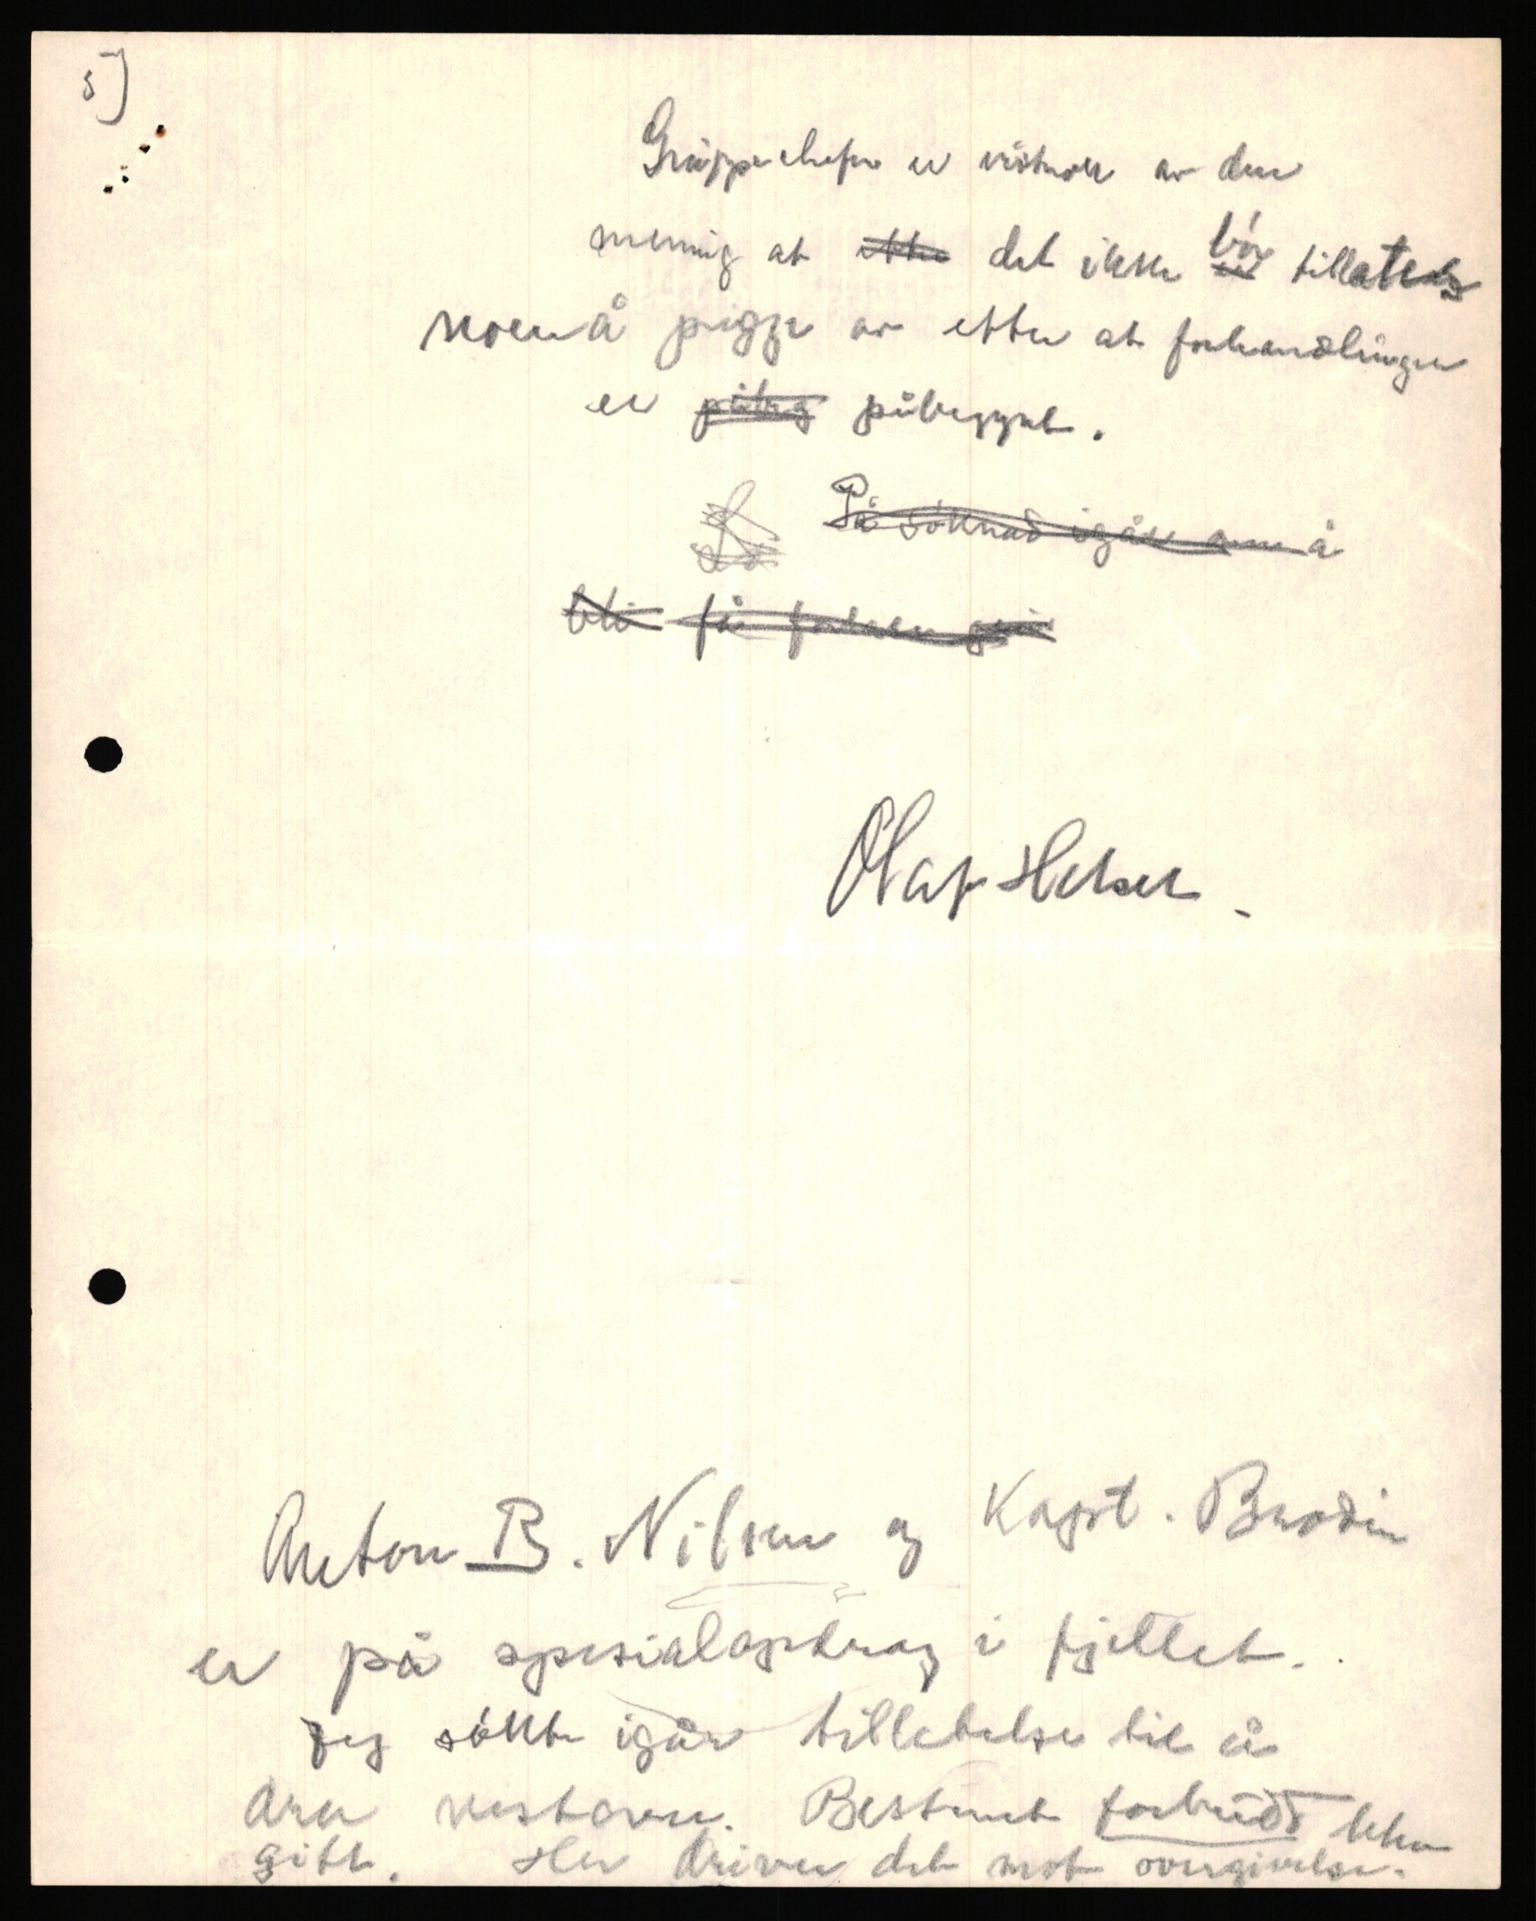 5]
Gruppechefen er visstnok av den
mening at ~~etter~~ det ikke bör tillates
noen å pigge av etter at forhandlinger
er ~~påbeg~~ påbegynt.
~~På söknad igår om å~~
~~bli få~~
Olaf Helset.
Anton B. Nilsen og Kapt. Brodin
er på spesialoppdrag i fjellet.
Jeg sökte igår tillatelse til å
dra vestover. Bestemt forbudt ble
gitt. Her driver det mot overgivelse.